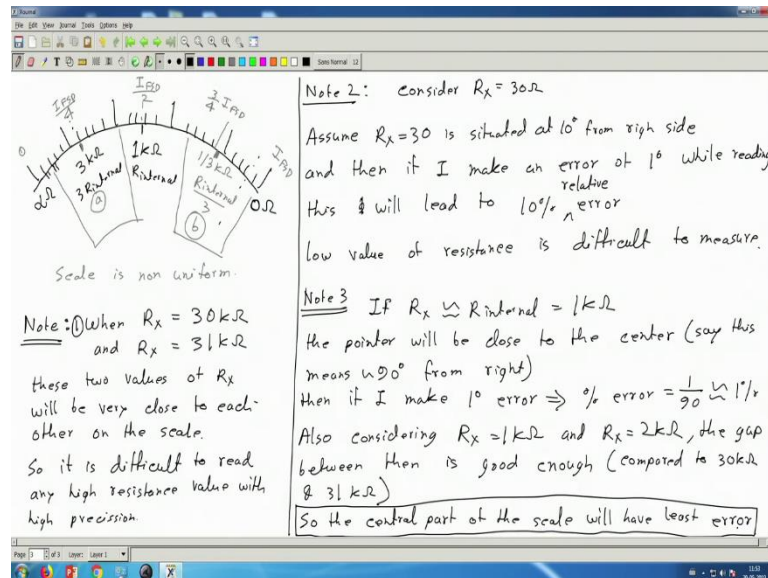 Journal
File Edit View Journal Tools Options Help
Sans Normal 12
0
I_FSD/4
I_FSD/2
3/4 I_FSD
I_FSD
∞Ω
3kΩ
3 Rinternal
ⓐ
1kΩ
Rinternal
1/3 kΩ
Rinternal/3
ⓑ
0Ω
Scale is non uniform.
Note: ① When Rx = 30kΩ
and Rx = 31kΩ
these two values of Rx
will be very close to each-
other on the scale.
So it is difficult to read
any high resistance value with
high precission.
Note 2: consider Rx = 30Ω
Assume Rx = 30 is situated at 10° from righ side
and then if I make an error of 1° while reading
this will lead to 10% relative error
low value of resistance is difficult to measure.
Note 3 If Rx ≃ Rinternal = 1kΩ
the pointer will be close to the center (say this
means ~90° from right)
then if I make 1° error ⇒ % error = 1/90 ≃ 1%
Also considering Rx = 1kΩ and Rx = 2kΩ, the gap
between then is good enough (compored to 30kΩ
& 31kΩ)
So the central part of the scale will have least error
Page 3 of 3 Layer: Layer 1
11:53